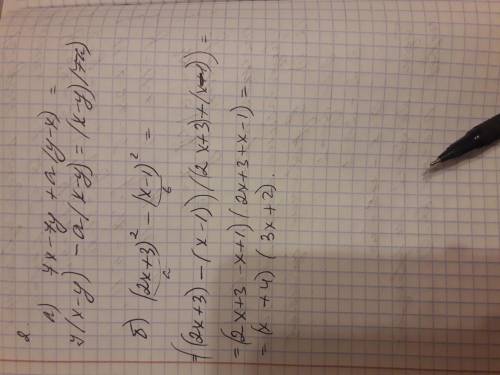 2.
а) 7x - 7y + a(y-x) =
7(x-y) - a(x-y) = (x-y)(7-a)
б) (2x+3)² - (x-1)² =
a в
= ((2x+3) - (x-1))((2x+3)+(x-1)) =
= (2x+3 -x+1)(2x+3+x-1) =
= (x +4)(3x+2).